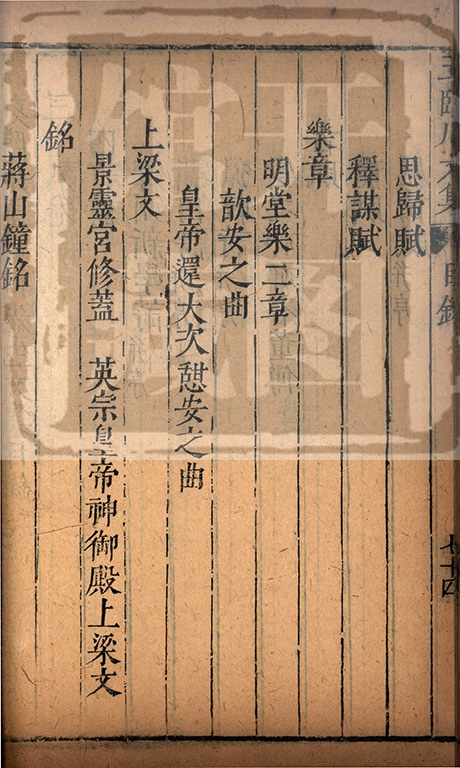 思歸賦
釋謀賦
樂章
明堂樂二章
歆安之曲
皇帝還大次憩安之曲
上梁文
景靈宮修蓋 英宗皇帝神御殿上梁文
銘
蔣山鐘銘
七十四